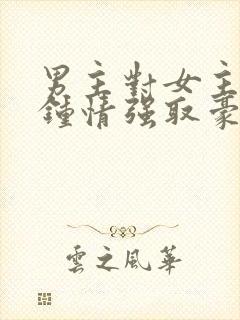 男主對女主
鍾情强取豪
雲之風華